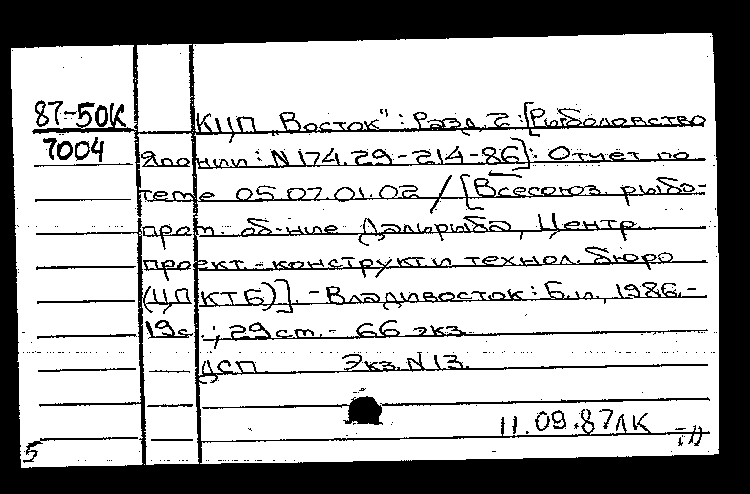 87-50К
7004
КЦП „Восток": Разд. 2: [Рыболовство
Японии: N 174.29-214-86]: Отчет по
теме 05.07.01.02 / [Всесоюз. рыбо-
пром. об-ние Дальрыба, Центр.
проект.-конструкт. и технол. бюро
(ЦПКТБ)]. - Владивосток: Б.и., 1986.-
19с.; 29см. - 66 экз.
ДСП Экз. N 13.
11.09.87 ЛК
5